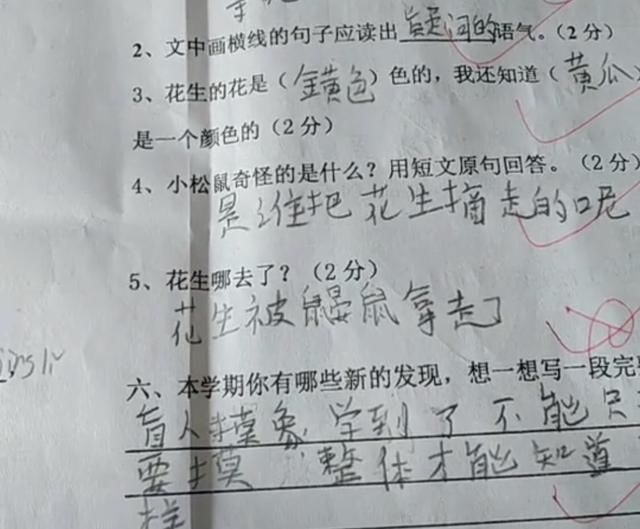 2、文中画横线的句子应读出疑问的语气。(2分)
3、花生的花是(黄色)色的,我还知道(黄瓜
是一个颜色的(2分)
4、小松鼠奇怪的是什么?用短文原句回答。(2分)
是谁把花生摘走的呢
5、花生哪去了?(2分)
花生被鼹鼠拿走了
六、本学期你有哪些新的发现,想一想写一段完
盲人摸象 学到了不能只
要摸 整体才能知道
样